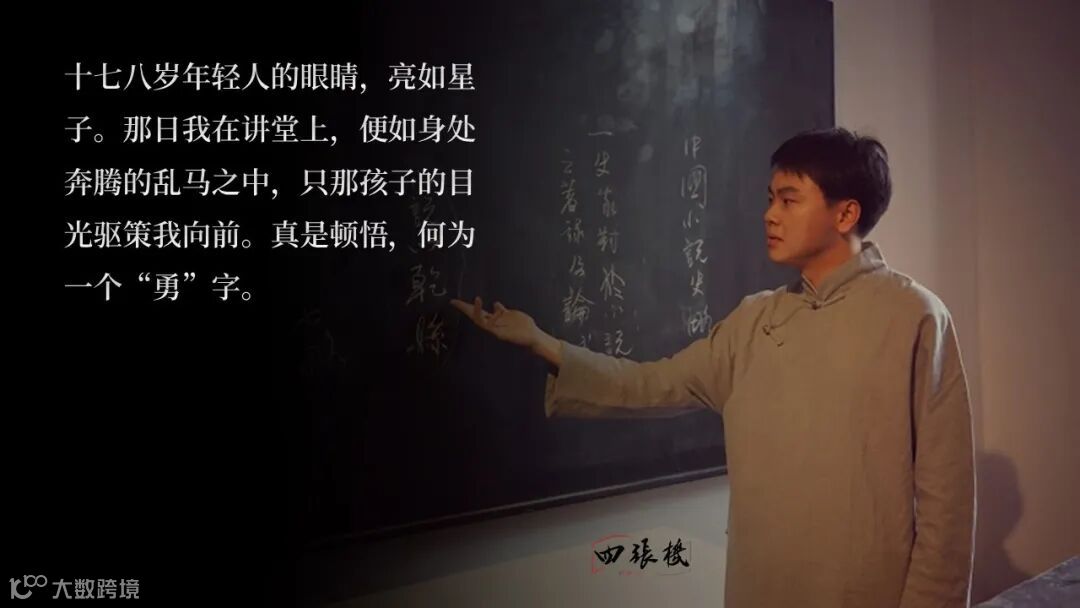 十七八岁年轻人的眼睛，亮如星
子。那日我在讲堂上，便如身处
奔腾的乱马之中，只那孩子的目
光驱策我向前。真是顿悟，何为
一个“勇”字。
中國小説史略
一史家對於小説
之著錄及論述
四張機
大数跨境